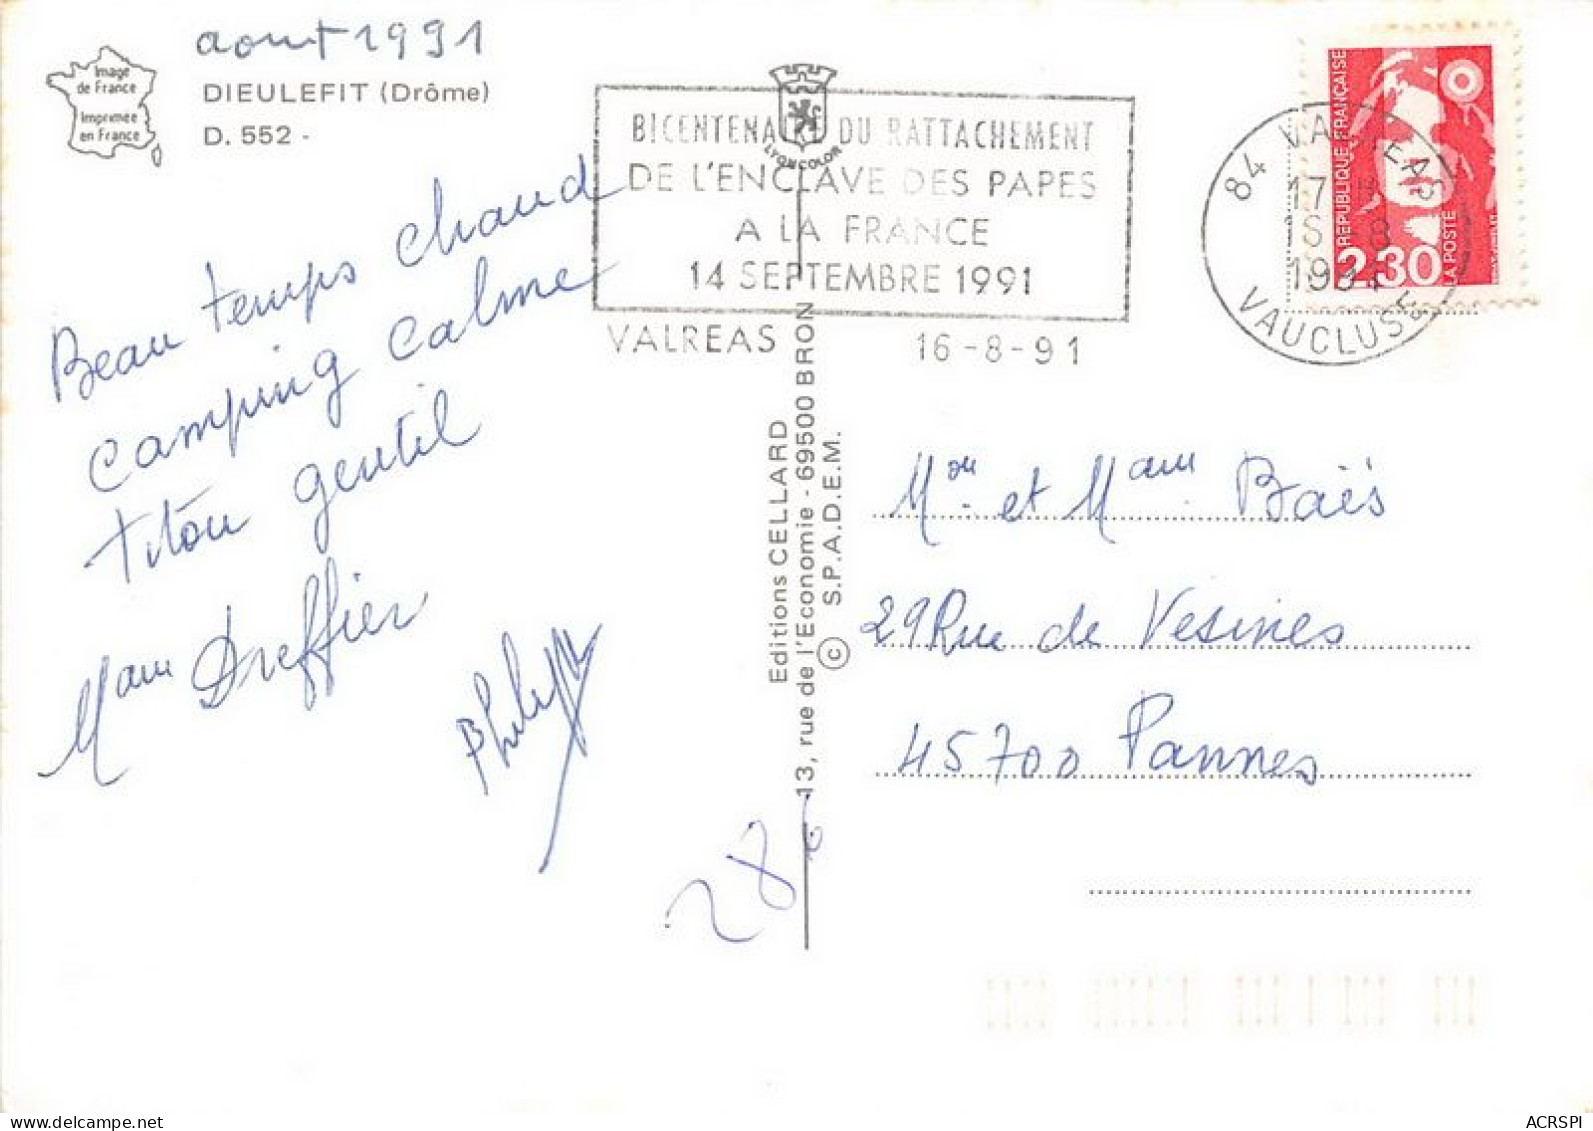 aout 1991
Image
de France
Imprimée
en France
DIEULEFIT (Drôme)
D. 552 -
Beau temps chaud
camping calme
titou gentil
Mam Dreffier
28
LYONCOLOR
BICENTENAIRE DU RATTACHEMENT
DE L'ENCLAVE DES PAPES
A LA FRANCE
14 SEPTEMBRE 1991
VALREAS 16-8-91
Editions CELLARD
13, rue de l'Economie - 69500 BRON
© S.P.A.D.E.M.
84 VALREAS
17 H
16-8
1991
VAUCLUSE
RÉPUBLIQUE FRANÇAISE
2,30
LA POSTE
Mon et Mam Baïs
29 Rue de Vesines
45700 Pannes
delcampe.net
ACRSPI